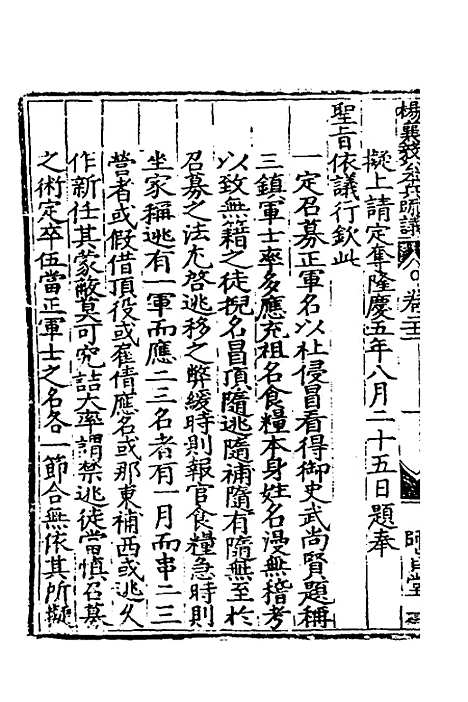 楊襄毅公本兵疏議 卷二十一
擬上請定奪隆慶五年八月二十五日題奉
聖旨依議行欽此
一定召募正軍名以杜侵冒看得御史武尚賢題稱
三鎮軍士率多應充祖名食糧本身姓名漫無稽考
以致無籍之徒捏名冒頂隨逃隨補隨有隨無至於
召募之法尤啓逃移之弊緩時則報官食糧急時則
坐家稱逃有一軍而應二三名者有一月而串二三
營者或假借頂役或雇倩應名或那東補西或逃久
作新任其蒙蔽莫可究詰大率謂禁逃徒當慎召募
之術定卒伍當正軍士之名各一節合無依其所擬